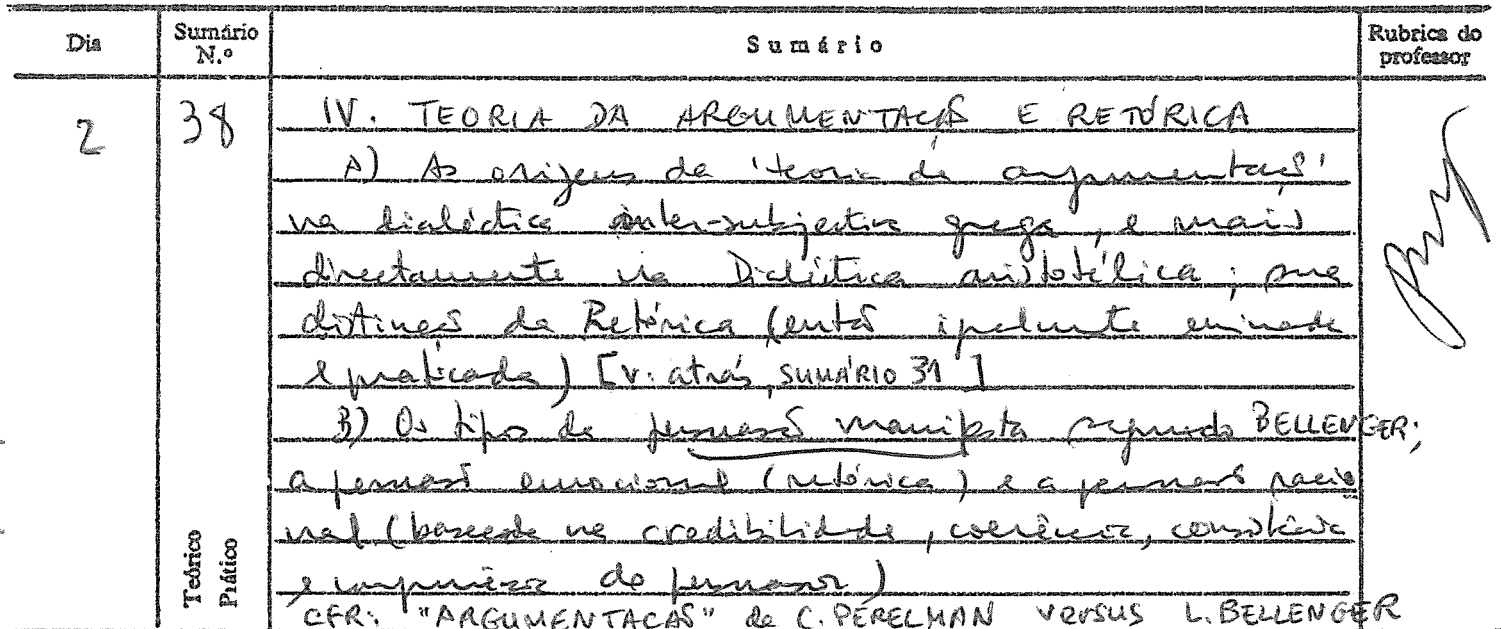 Dia Sumário N.º Sumário Rubrica do professor
2 38 IV. TEORIA DA ARGUMENTAÇÃO E RETÓRICA
A) As origens da 'teoria da argumentação'
na dialéctica inter-subjectiva grega, e mais
directamente na Dialéctica aristotélica; sua
distinção da Retórica (então igualmente ensinada
e praticada) [V. atrás, SUMÁRIO 31]
B) Os tipos de persuasão manifesta segundo BELLENGER;
a persuasão emocional (retórica) e a persuasão racio
nal (baseada na credibilidade, coerência, consistência
e do persuasor)
CFR: "ARGUMENTAÇÃO" de C. PERELMAN versus L. BELLENGER
Teórico
Prático